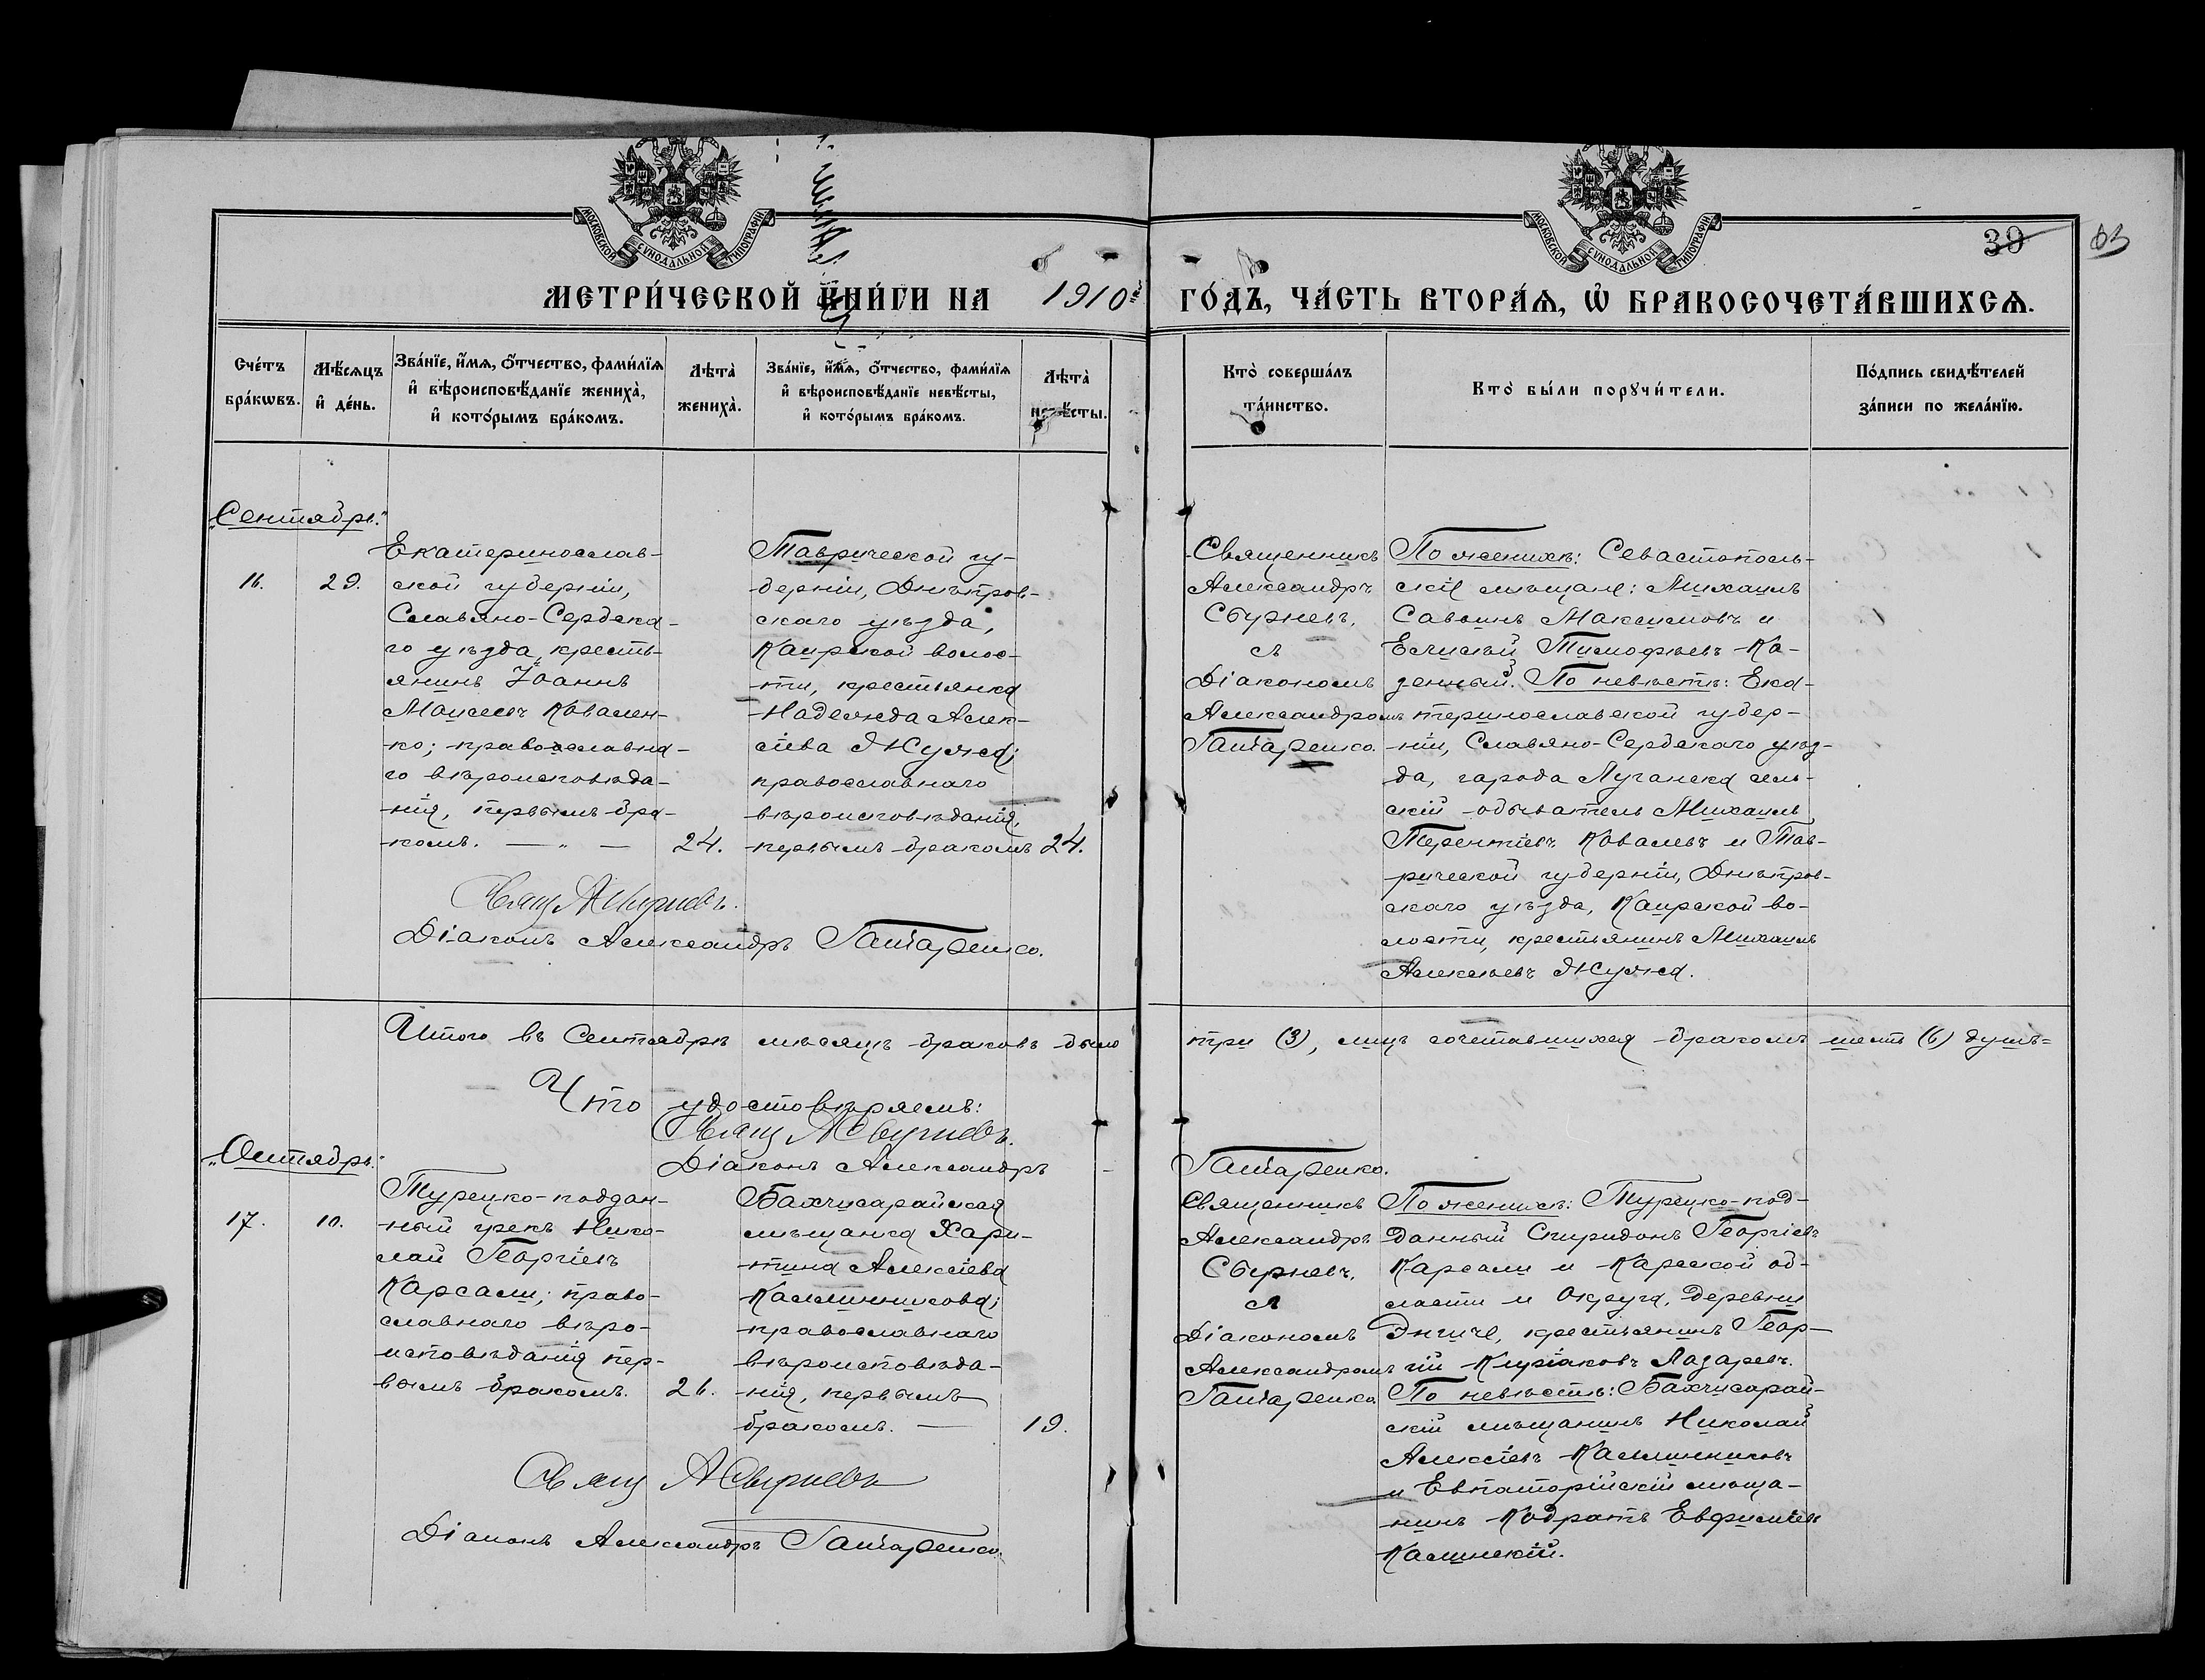 МОСКОВСКОЙ СУНОДАЛЬНОЙ ТИПОГРАФІИ
МОСКОВСКОЙ СУНОДАЛЬНОЙ ТИПОГРАФІИ
39
МЕТРИ́ЧЕСКОЙ КНИ́ГИ НА 1910й ГО́ДЪ, ЧА́СТЬ ВТОРА́Я, Ѡ БРАКОСОЧЕТА́ВШИХСЯ.
Сче́тъ бра́кѡвъ.
Мѣ́сяцъ и҆ де́нь.
Зва́нїе, и҆́мя, ѻ҆́тчество, фами́лїя
и҆ вѣроисповѣ́данїе жениха̀,
и҆ кото́рымъ бра́комъ.
Лѣта̀ жениха̀.
Зва́нїе, и҆́мя, ѻ҆́тчество, фами́лїя
и҆ вѣроисповѣ́данїе невѣ́сты,
и҆ кото́рымъ бра́комъ.
Лѣта̀ невѣ́сты.
Кто̀ соверша́лъ та́инство.
Кто̀ бы́ли порꙋчи́тели.
По́дпись свидѣ́телей
за́писи по жела́нїю.
„Сентябрь."
16.
29.
Екатеринослав-
ской губерніи,
Славяно-Сербска-
го уѣзда, кресть-
янинъ Іоаннъ
Моисеевъ Ковален-
ко; православна-
го вѣроисповѣда-
нія, первымъ бра-
комъ. — „ —
24.
Таврической гу-
берніи, Днѣпров-
скаго уѣзда,
Каирской волос-
ти, крестьянка
Надежда Алек-
сіева Жужа;
православнаго
вѣроисповѣданія,
первымъ бракомъ
24.
Священникъ
Александръ
Сбурневъ,
съ
Діакономъ
Александромъ
По женихѣ: Севастополь-
скіе мѣщане: Михаилъ
Саввинъ Максимовъ и
Елисѣй Тимофѣевъ Ка-
денный. По невѣстѣ: Ека-
теринославской губер-
ніи, Славяно-Сербскаго уѣз-
да, города Луганска сель-
скій обыватель Михаилъ
Терентіевъ Ковалевъ и Тав-
рической губерніи, Днѣпров-
скаго уѣзда, Каирской во-
лости, крестьянинъ Михаилъ
Алексѣевъ Жужа.
Діаконъ Александръ
Итого въ Сентябрѣ мѣсяцѣ браковъ было три (3), лицъ сочетавшихся бракомъ шесть (6) душъ=
Что удостовѣряемъ:
Діаконъ Александръ
„Октябрь."
17.
10.
Турецко-поддан-
ный грекъ Нико-
лай Георгіевъ
Карсали; право-
славнаго вѣро-
исповѣданія пер-
вымъ бракомъ.
26.
Бахчисарайская
мѣщанка Хари-
тина Алексіева
Калинникова;
православнаго
вѣроисповѣда-
нія, первымъ
бракомъ. —
19.
Священникъ
Александръ
Сбурневъ,
съ
Діакономъ
Александромъ
По женихѣ: Турецко-под-
данный Спиридонъ Георгіевъ
Карсали и Карской об-
ласти и Округа, деревни
Энгиче, крестьянинъ Геор-
гій Киріаковъ Лазаревъ.
По невѣстѣ: Бахчисарай-
скій мѣщанинъ Николай
Алексіевъ Калинниковъ
и Евпаторійскій мѣща-
нинъ Кодратъ Евфиміевъ
Калинскій.
Діаконъ Александръ